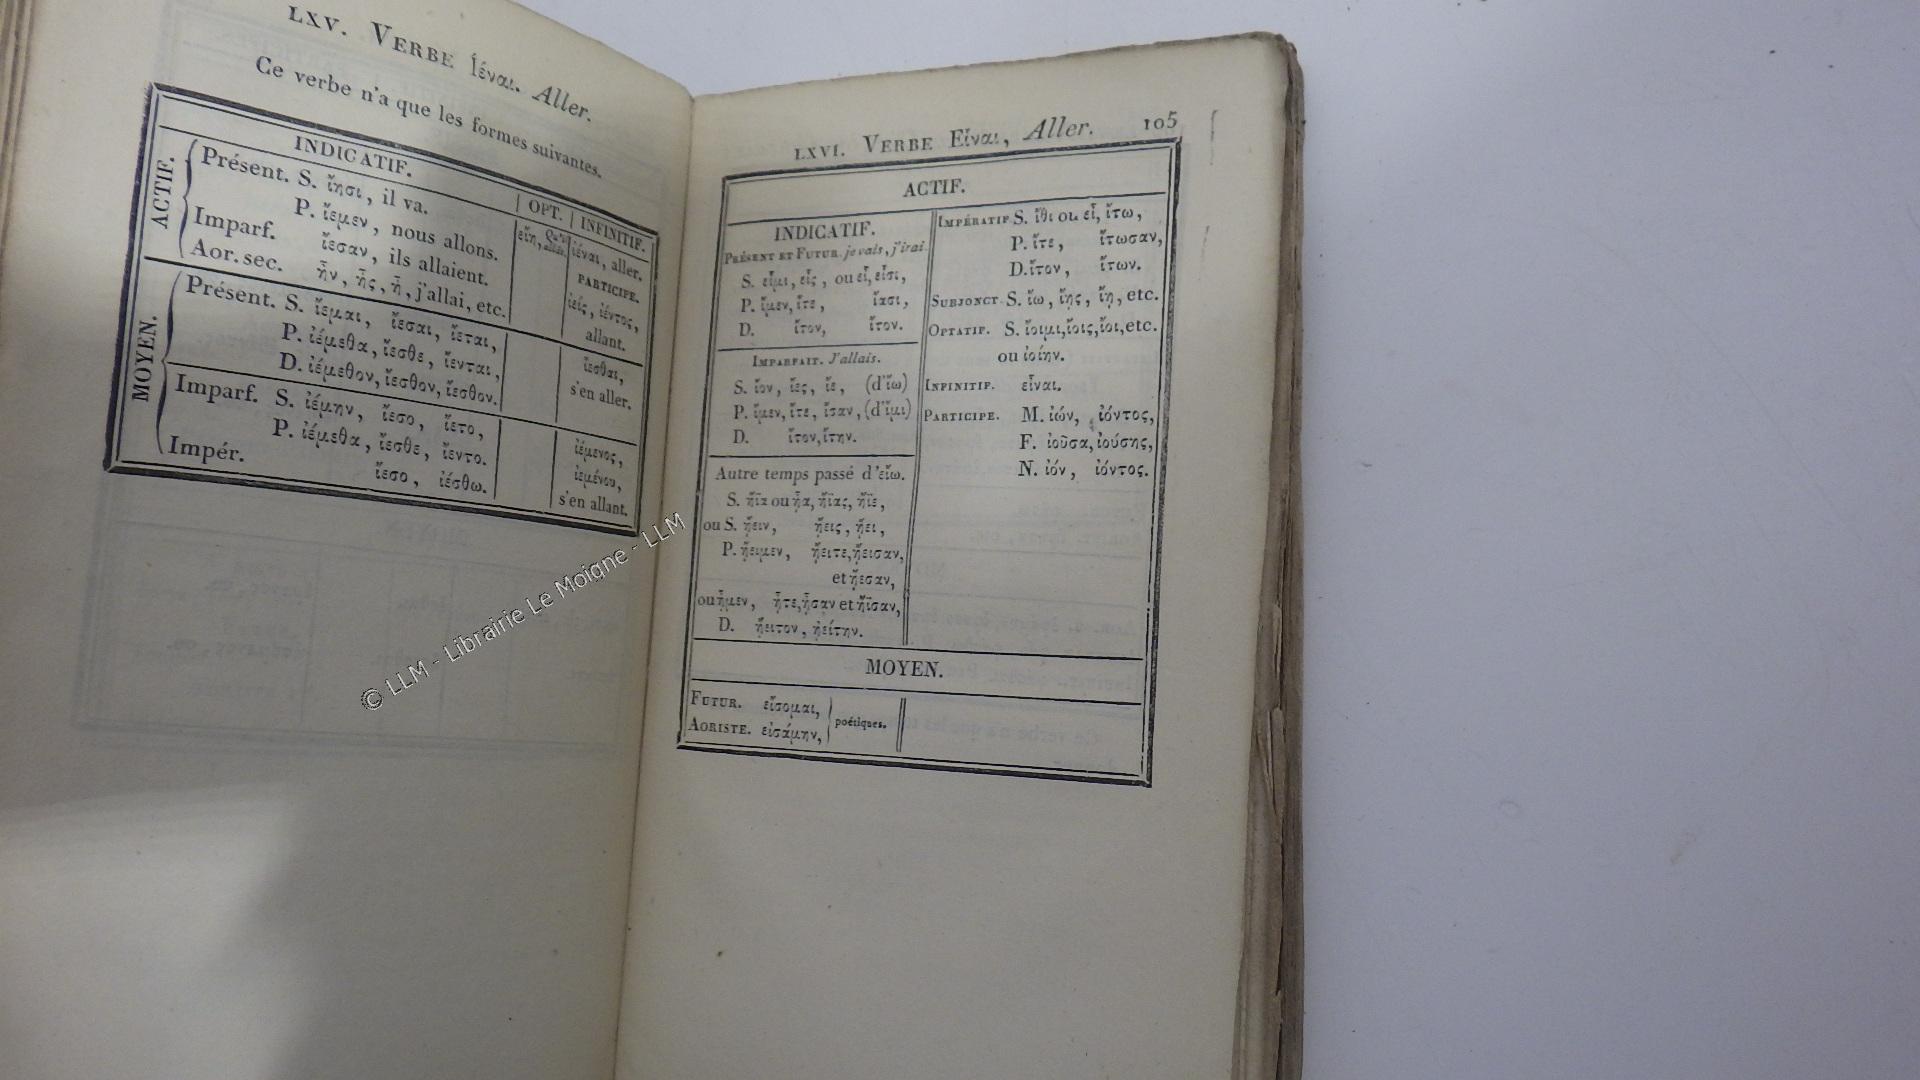 LXV. VERBE Ἰέναι. Aller.
Ce verbe n'a que les formes suivantes.
INDICATIF.
OPT.
INFINITIF.
ACTIF.
Présent. S. ἵησι, il va.
P. ἵεμεν, nous allons.
Imparf. ἵεσαν, ils allaient.
Aor. sec. ἦν, ἧς, ἦ, j'allai, etc.
εἴη,
ἰέναι, aller.
PARTICIPE.
ἱείς, ἱέντος,
allant.
MOYEN.
Présent. S. ἵεμαι, ἵεσαι, ἵεται,
P. ἱέμεθα, ἵεσθε, ἵενται,
D. ἱέμεθον, ἵεσθον, ἵεσθον.
ἵεσθαι,
s'en aller.
Imparf. S. ἱέμην, ἵεσο, ἵετο,
P. ἱέμεθα, ἵεσθε, ἵεντο.
Impér. ἵεσο, ἱέσθω.
ἱέμενος,
ἱεμένου,
s'en allant.
LXVI. VERBE Εἶναι, Aller. 105
ACTIF.
INDICATIF.
PRÉSENT ET FUTUR. je vais, j'irai.
S. εἶμι, εἶς, ou εἶ, εἶσι,
P. ἴμεν, ἴτε, ἴασι,
D. ἴτον, ἴτον.
IMPARFAIT. J'allais.
S. ἴον, ἴες, ἴε, (d'ἴω)
P. ἴμεν, ἴτε, ἴσαν, (d'ἶμι)
D. ἴτον, ἴτην.
Autre temps passé d'εἴω.
S. ἤϊα ou ἦα, ἤϊας, ἤϊε,
ou S. ᾔειν, ᾔεις, ᾔει,
P. ᾔειμεν, ᾔειτε, ᾔεισαν,
et ᾔεσαν,
ou ᾖμεν, ᾖτε, ᾖσαν et ἤϊσαν,
D. ᾔειτον, ᾐείτην.
IMPÉRATIF S. ἴθι ou εἶ, ἴτω,
P. ἴτε, ἴτωσαν,
D. ἴτον, ἴτων.
SUBJONCT. S. ἴω, ἴῃς, ἴῃ, etc.
OPTATIF. S. ἴοιμι, ἴοις, ἴοι, etc.
ou ἰοίην.
INFINITIF. εἶναι.
PARTICIPE. M. ἰών, ἰόντος,
F. ἰοῦσα, ἰούσης,
N. ἰόν, ἰόντος.
MOYEN.
FUTUR. εἴσομαι,
AORISTE. εἰσάμην,
poétiques.
© LLM - Librairie Le Moigne - LLM